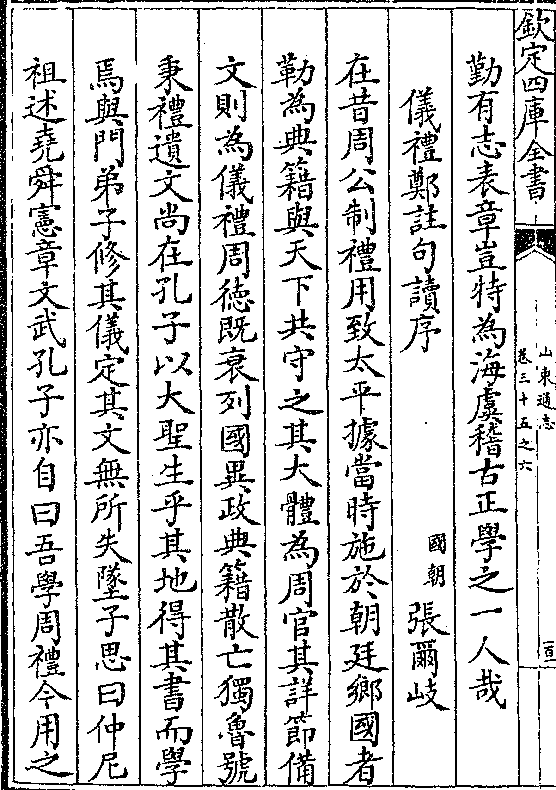 欽定四庫全書
山東通志
卷三十五之六
勤有志表章豈特為海虞稽古正學之一人哉
儀禮鄭註句讀序
國朝 張爾岐
在昔周公制禮用致太平據當時施於朝廷鄉國者
勒為典籍與天下共守之其大體為周官其詳節備
文則為儀禮周德既衰列國異政典籍散亡獨魯號
秉禮遺文尚在孔子以大聖生乎其地得其書而學
焉與門弟子修其儀定其文無所失墜子思曰仲尼
祖述堯舜憲章文武孔子亦自曰吾學周禮今用之